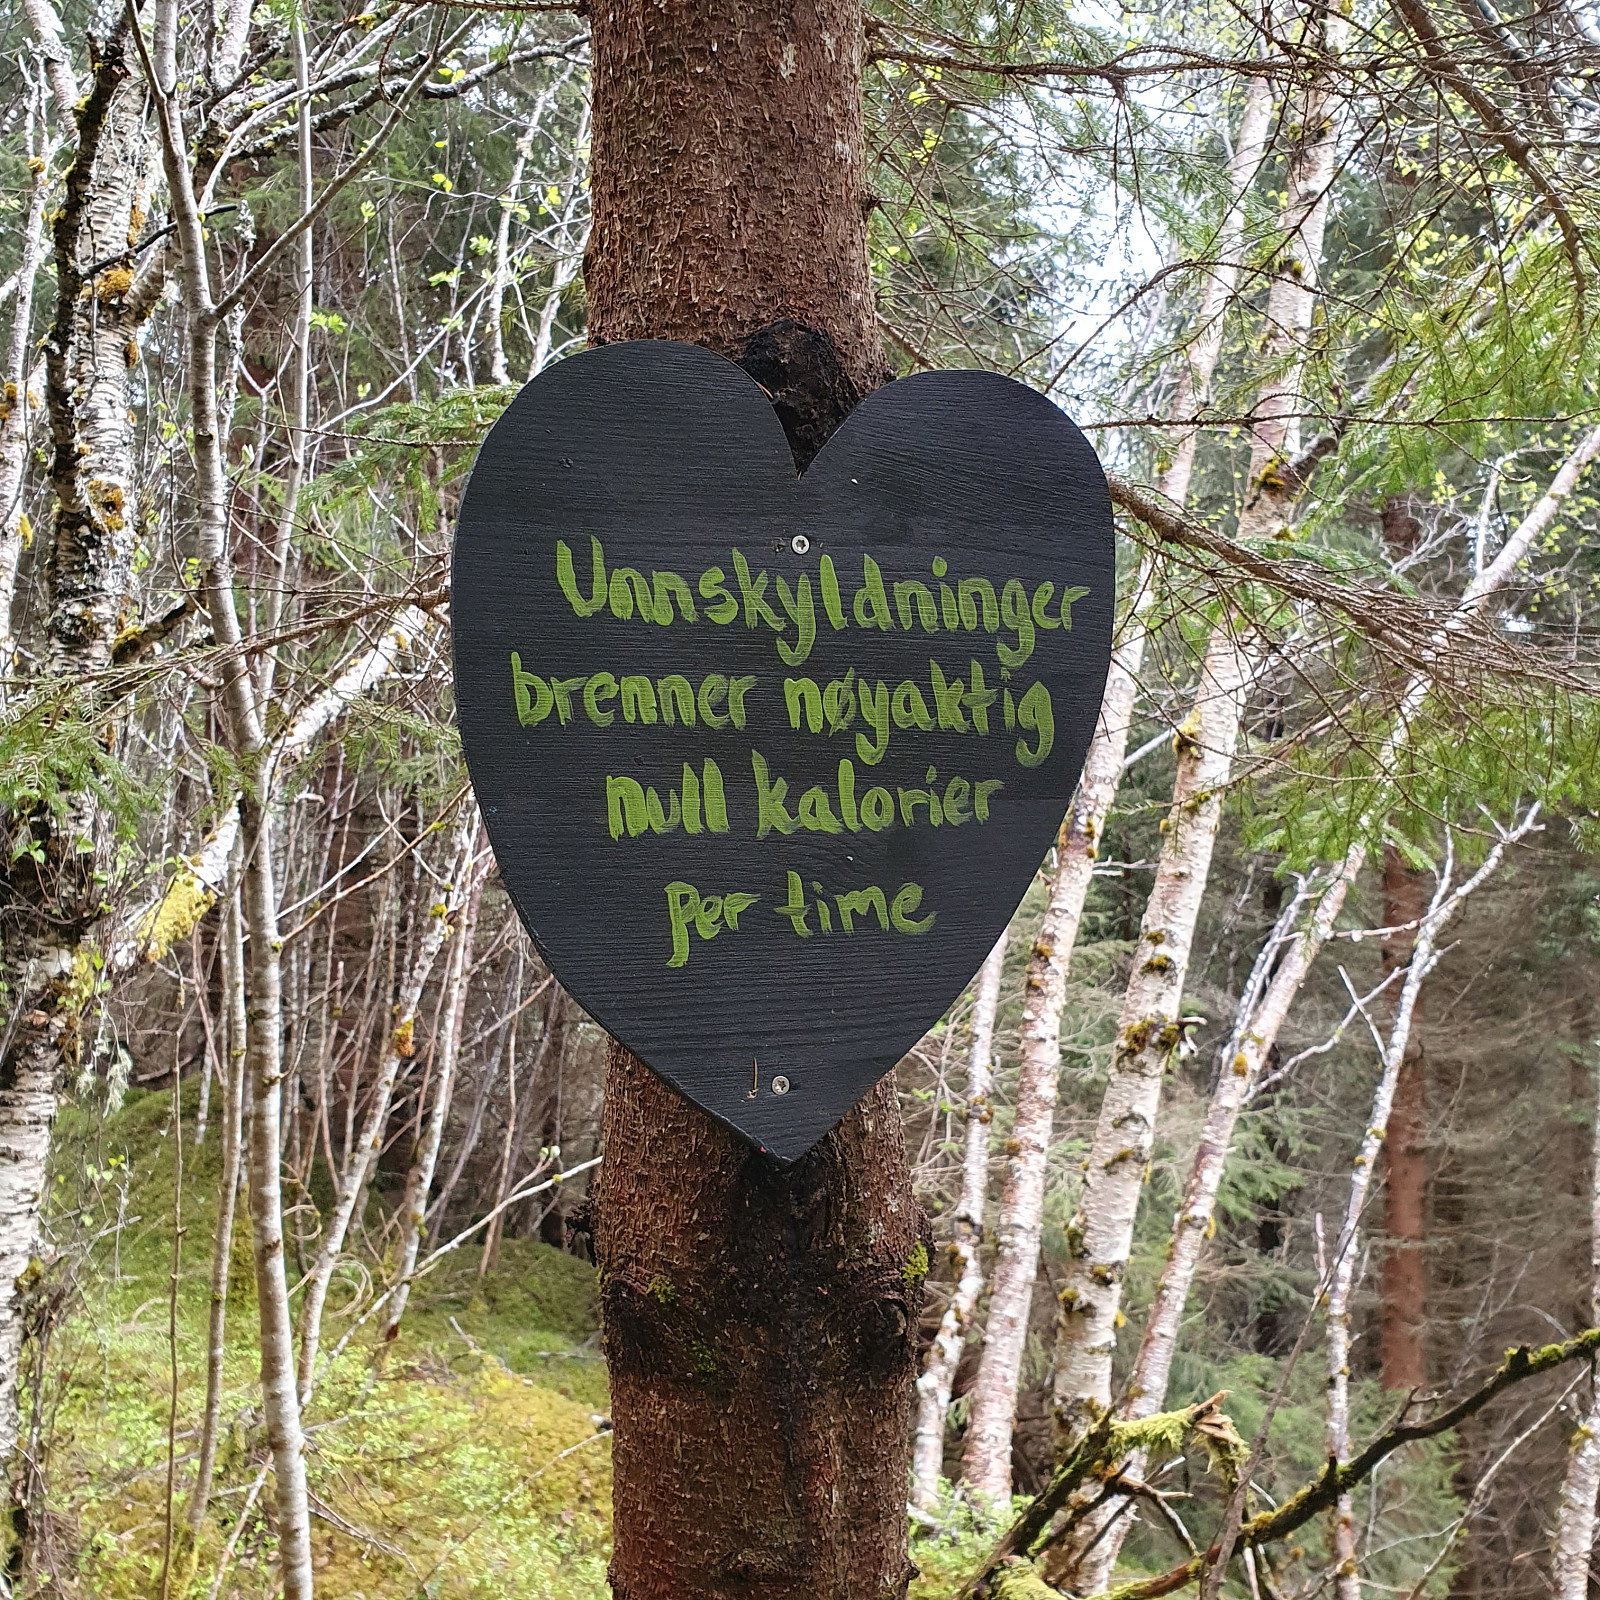 Unnskyldninger
brenner nøyaktig
null kalorier
per time